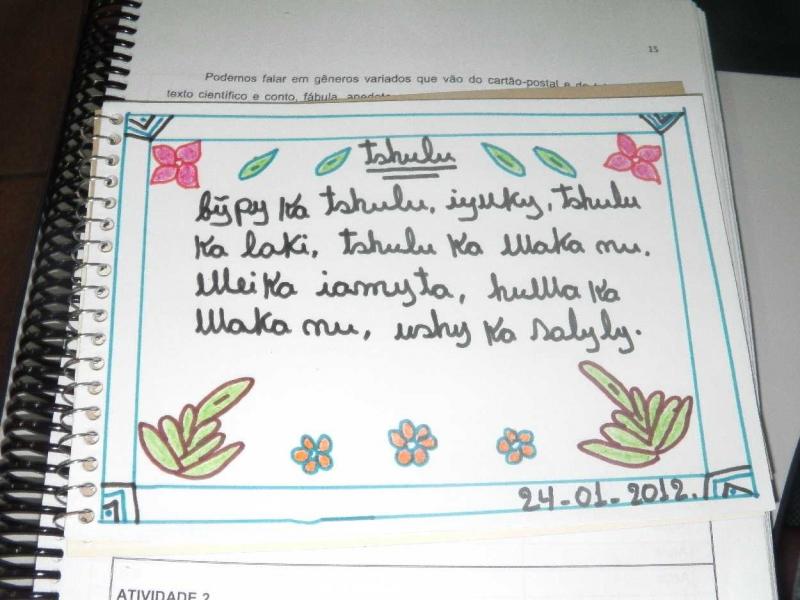 15
Podemos falar em gêneros variados que vão do cartão-postal e do
texto científico e conto, fábula, anedota
tshulu
bỹpy ka tshulu, iyuky, tshulu
ka laki, tshulu ka Waka nu.
Wei ka iamyta, huWa ka
Waka nu, ushy ka salyly.
24-01-2012.
ATIVIDADE 2